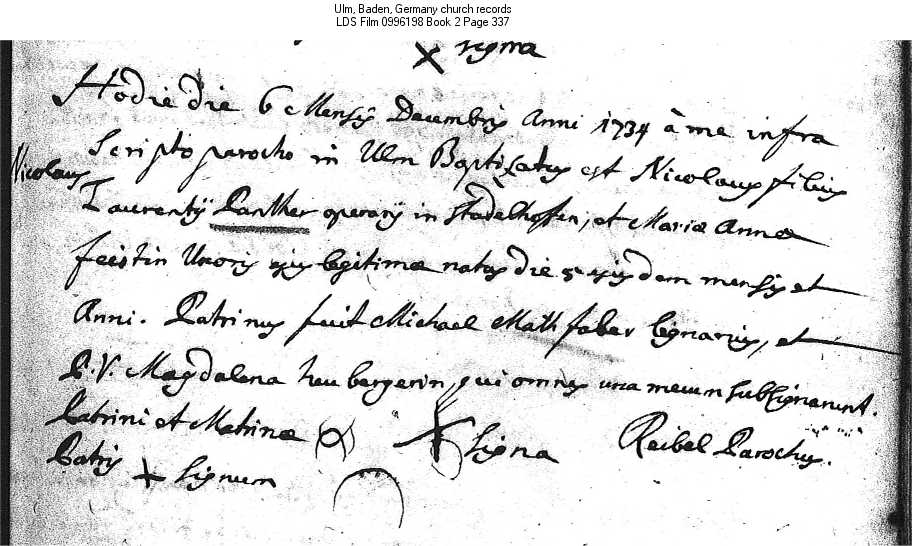 Ulm, Baden, Germany church records
LDS Film 0996198 Book 2 Page 337
signa
Hodie die 6 Mensis Decembris Anni 1734 à me infra
Scripto parocho in Ulm Baptizatus est Nicolaus filius
Nicolaus
Laurentij Panther operarij in Stadelhoffen, et Mariæ Annæ
feistin Uxoris ejus legitimæ natus die 5 ejusdem mensis et
Anni. Patrinus fuit Michael Math faber lignarius, et
P.V. Magdalena heubergerin, qui omnes una mecum subsignarunt.
Patrini et Matrinæ signa Reibel Parochus.
Patris + Signum